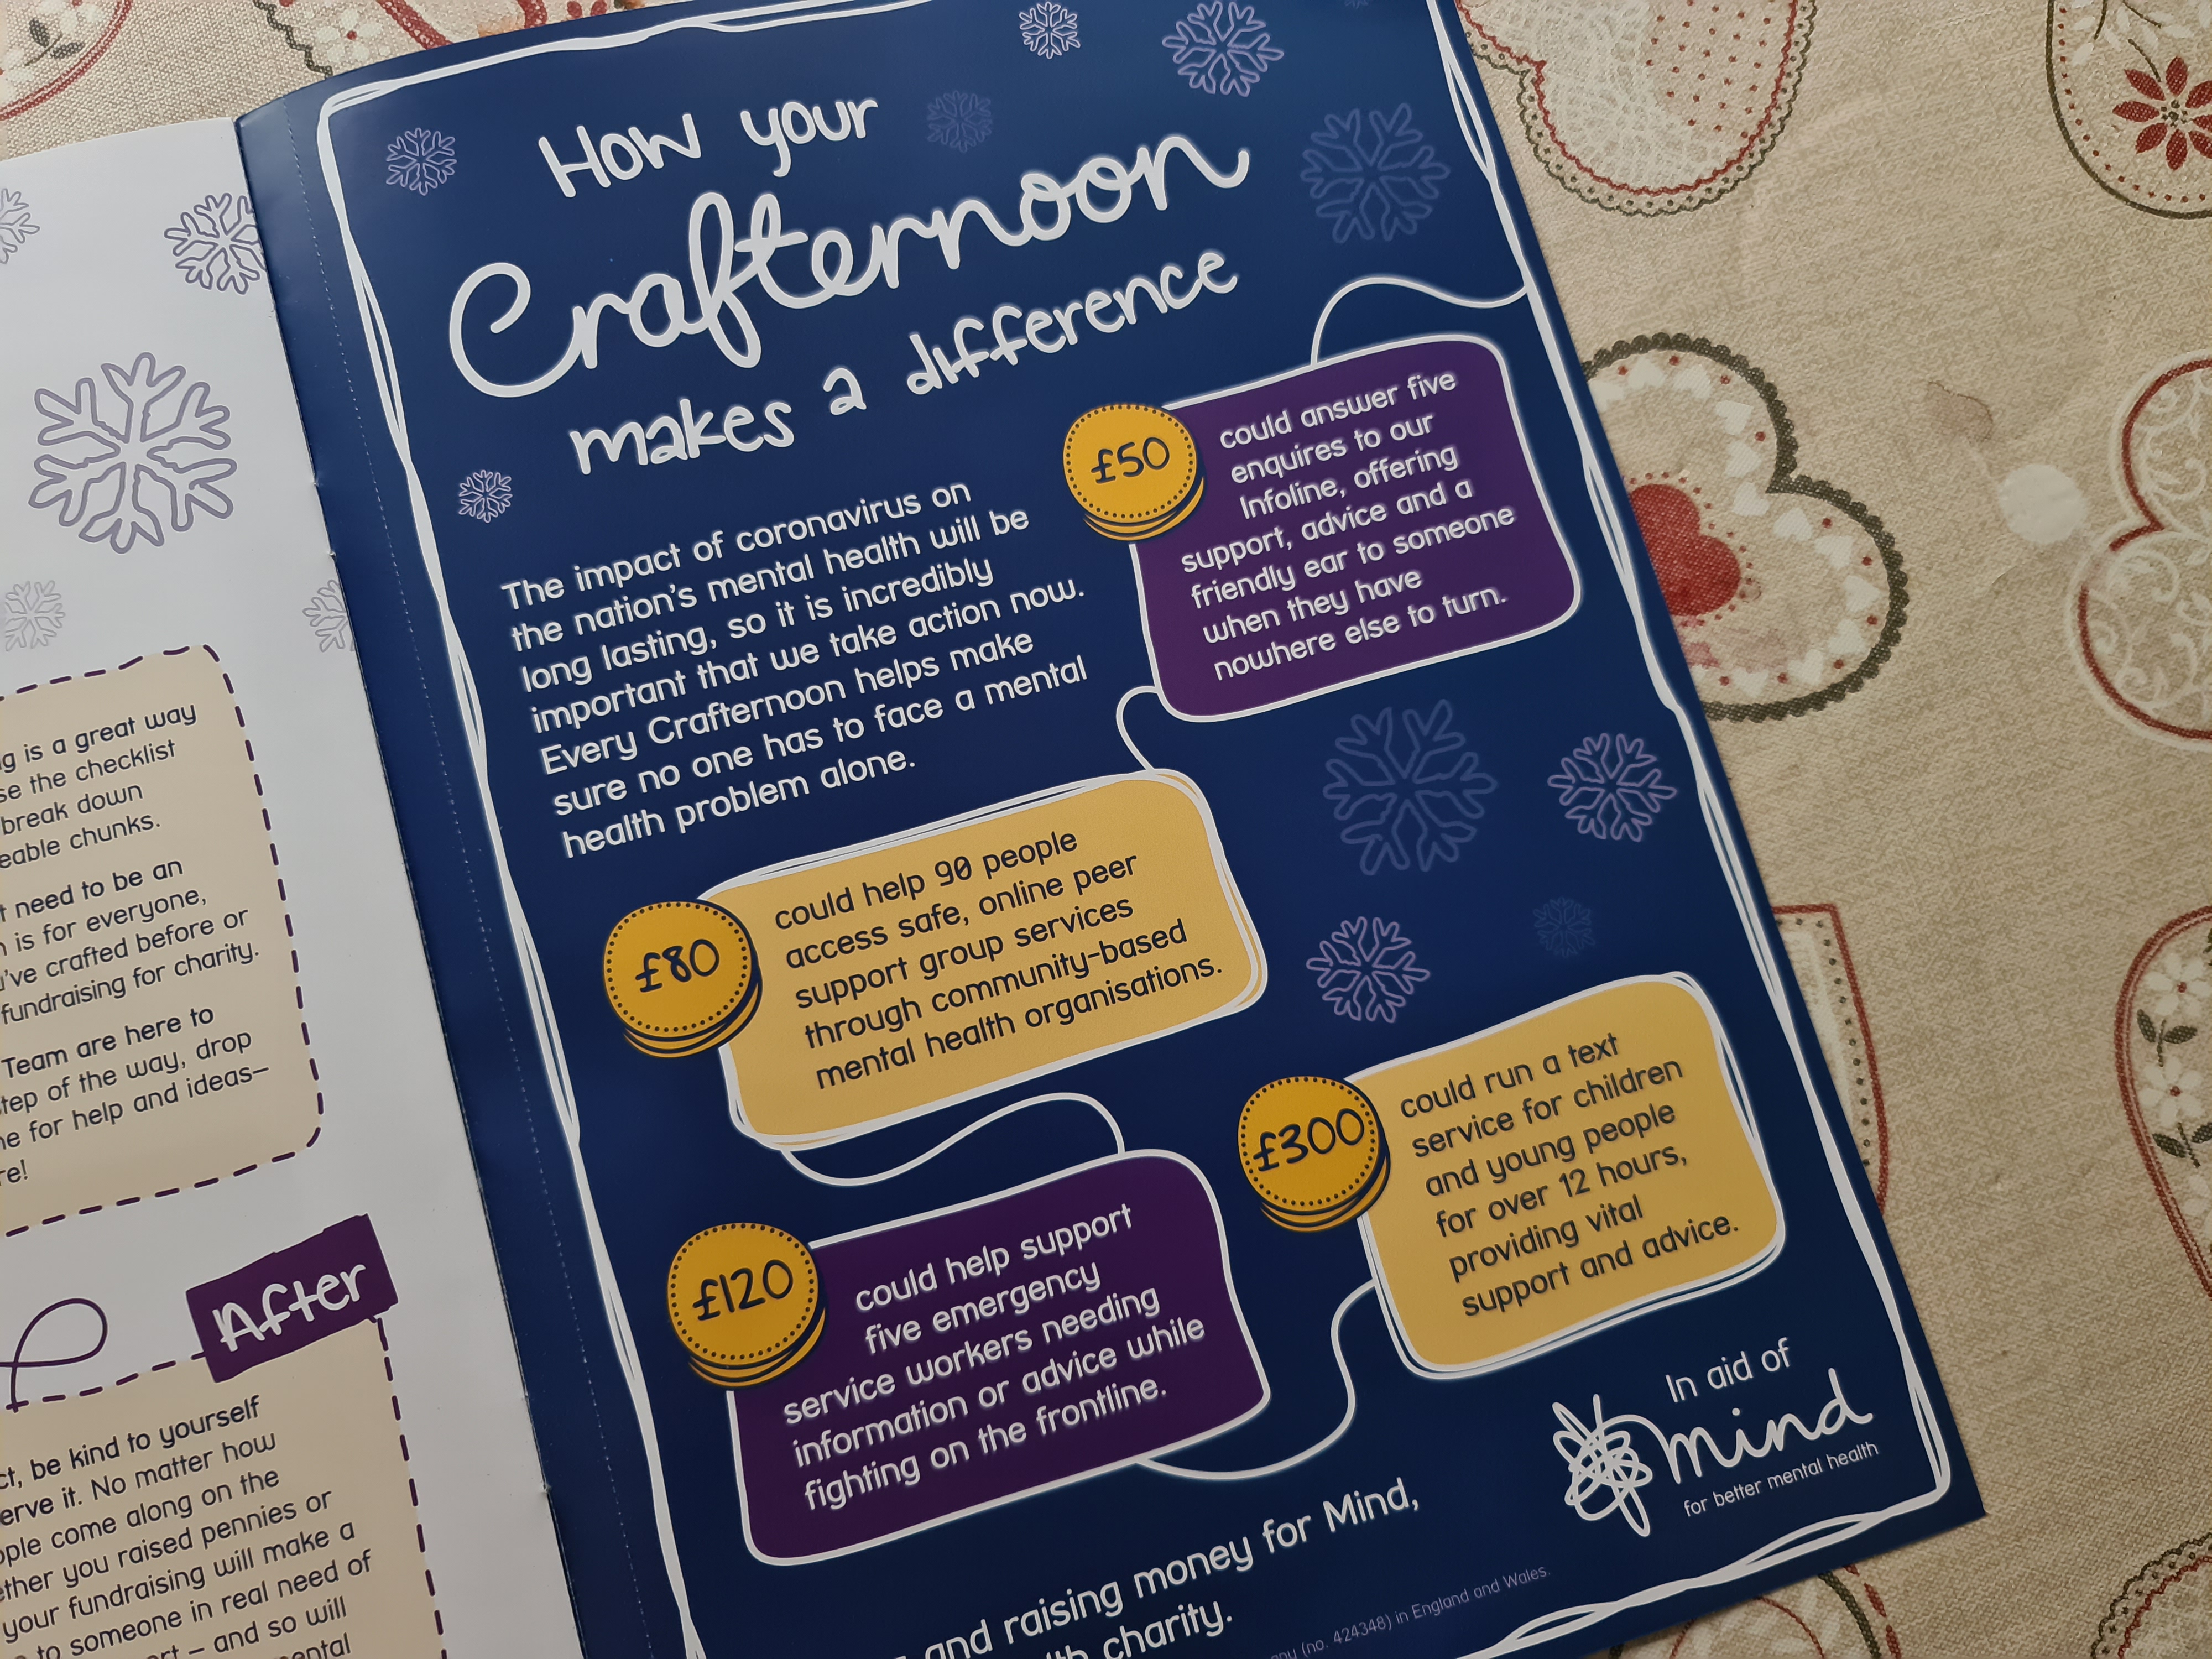 g is a great way
se the checklist
break down
eable chunks.
t need to be an
n is for everyone,
u've crafted before or
fundraising for charity.
Team are here to
tep of the way, drop
ne for help and ideas–
re!
After
ct, be kind to yourself
erve it. No matter how
ople come along on the
ether you raised pennies or
your fundraising will make a
to someone in real need of
ort – and so will
ental
How your
Crafternoon
makes a difference
The impact of coronavirus on
the nation's mental health will be
long lasting, so it is incredibly
important that we take action now.
Every Crafternoon helps make
sure no one has to face a mental
health problem alone.
£50
could answer five
enquires to our
Infoline, offering
support, advice and a
friendly ear to someone
when they have
nowhere else to turn.
£80
could help 90 people
access safe, online peer
support group services
through community-based
mental health organisations.
£120
could help support
five emergency
service workers needing
information or advice while
fighting on the frontline.
£300
could run a text
service for children
and young people
for over 12 hours,
providing vital
support and advice.
In aid of
mind
for better mental health
and raising money for Mind,
lth charity.
any (no. 424348) in England and Wales.